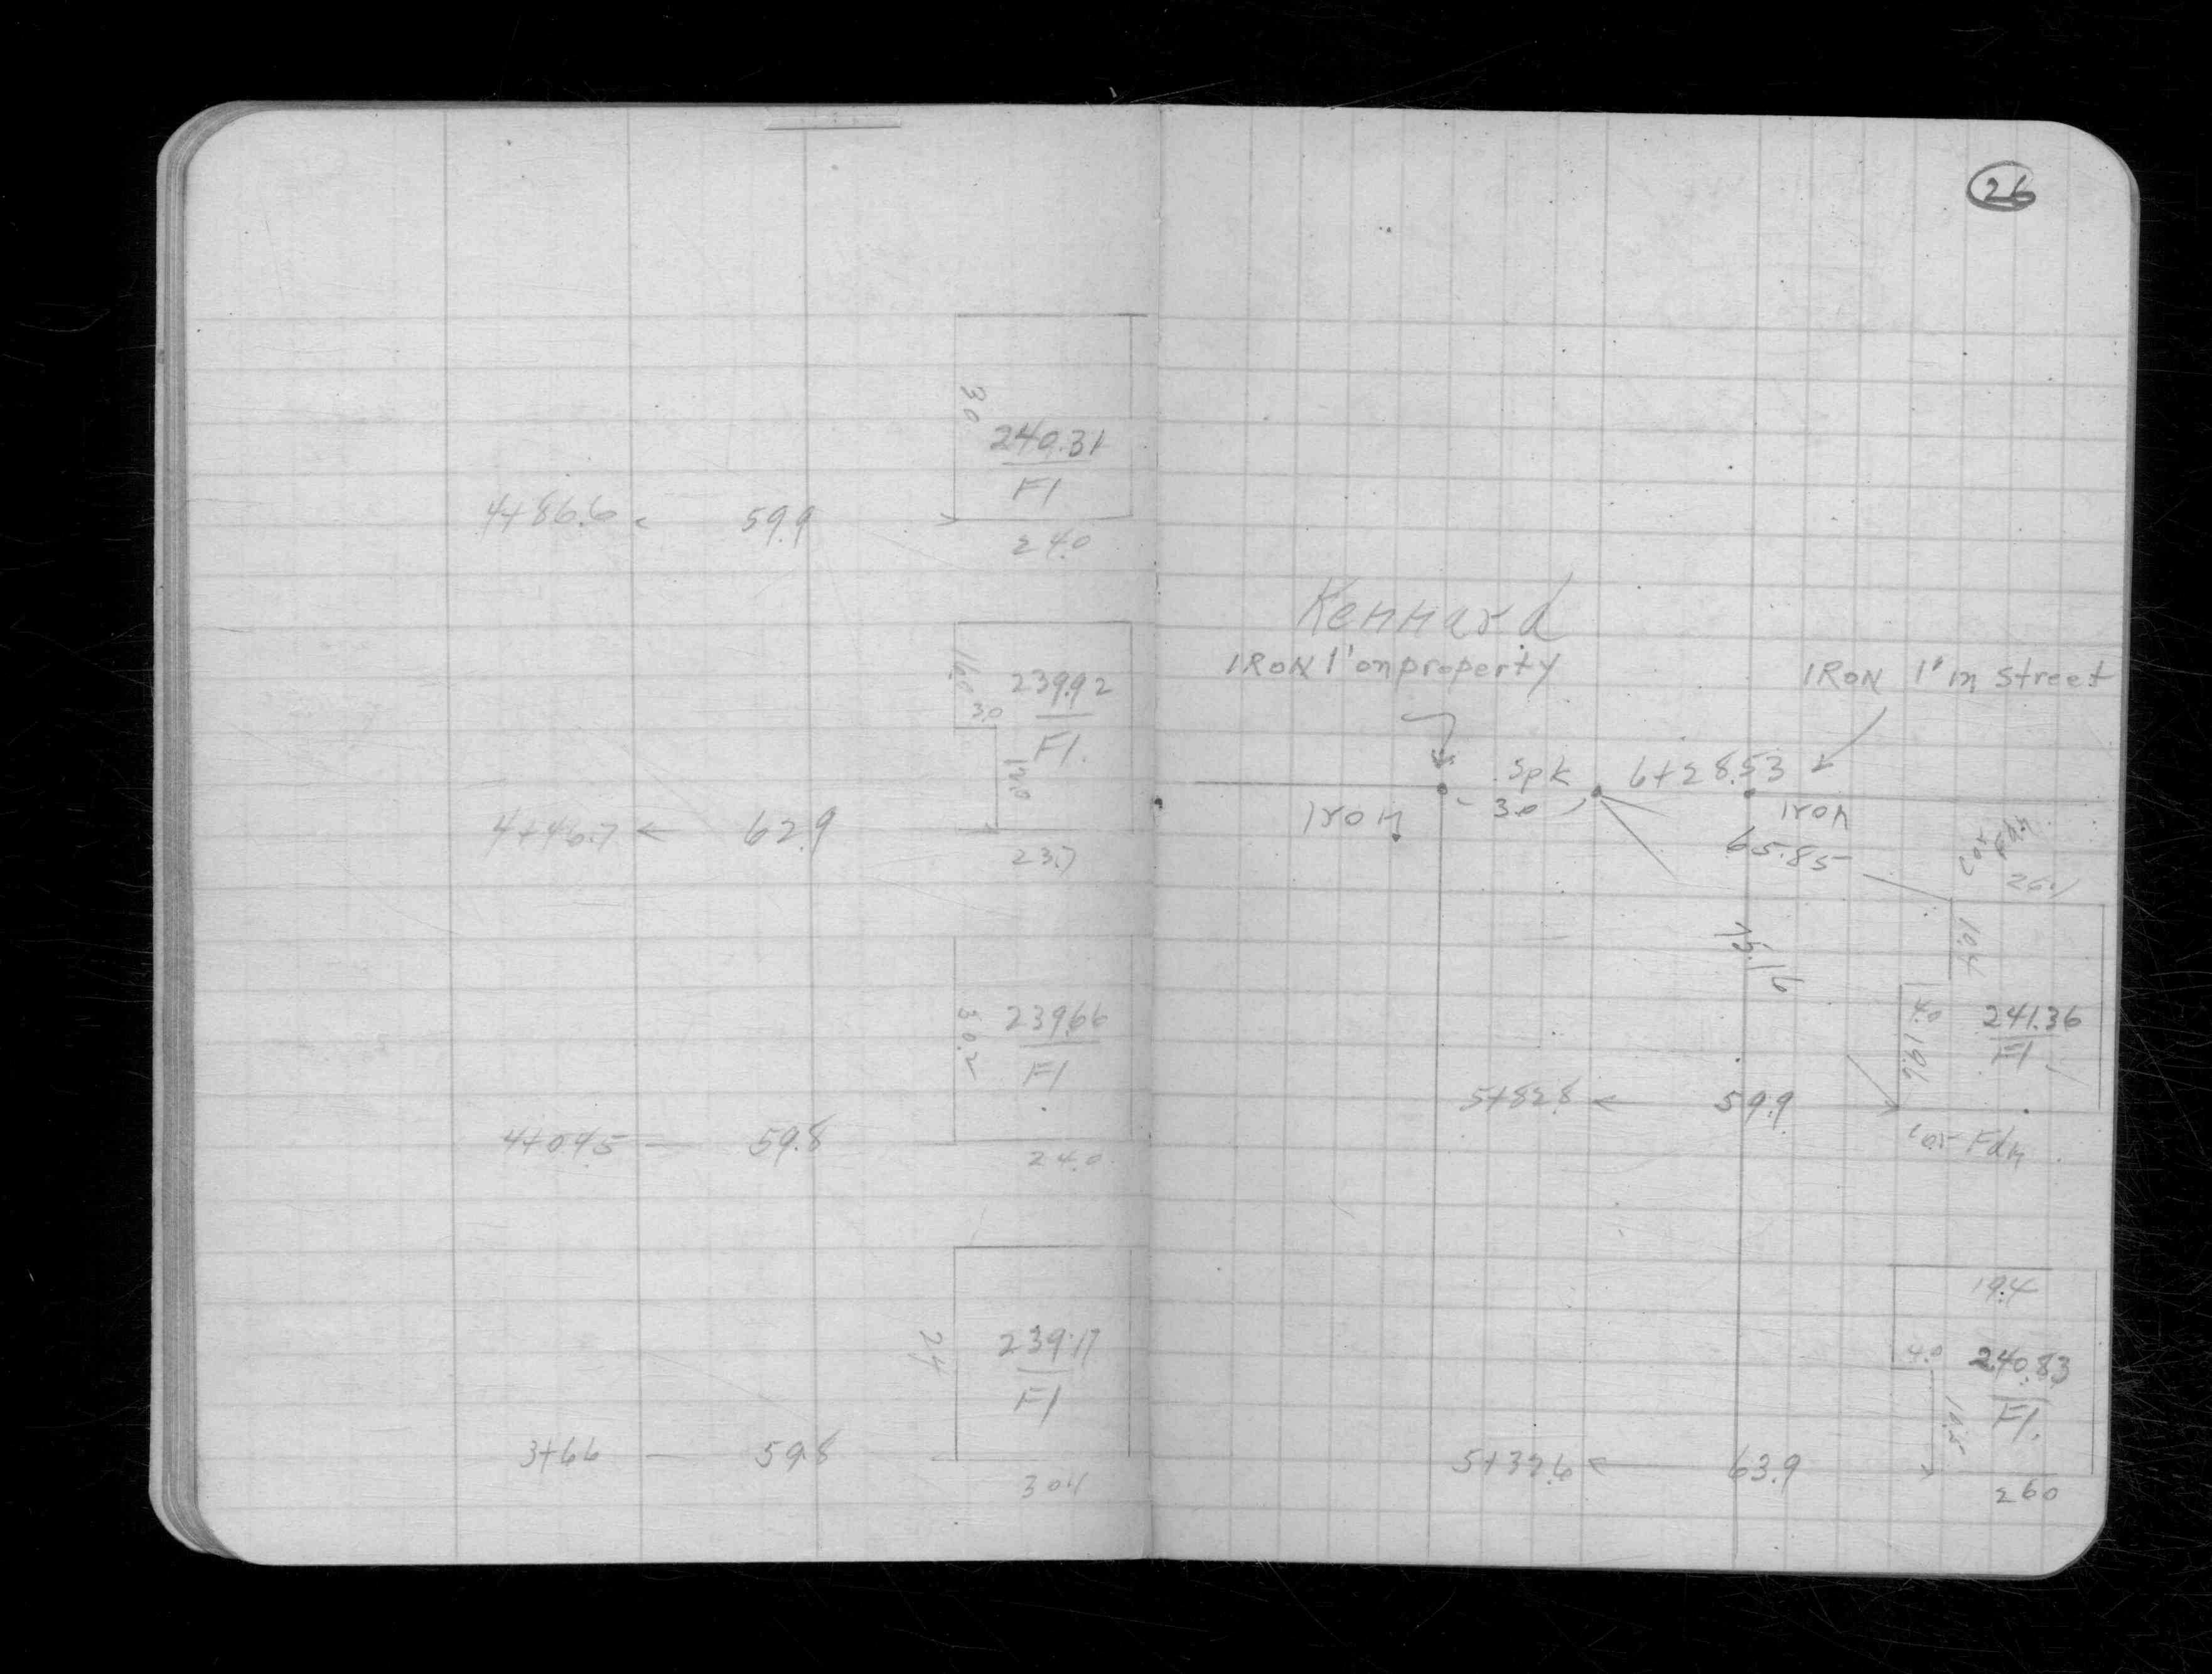 30
240.31
F1
4+86.6 59.9
24.0
16.0
239.92
3.0
F1.
14.0
4+46.7 62.9
23.7
30.2
239.66
F1
4+04.5 59.8
24.0
239.17
24
F1
3+66 59.8
30.1
26
Kennard
IRON 1' on property
IRON 1' in Street
Spk 6+28.53
Iron 30 Iron
65.85
26.1
10.4
4.0
241.36
F1
19.6
5+82.8 59.9
.05 Fdn
19.4
4.0
240.83
F1.
5+39.6 63.9
26.0